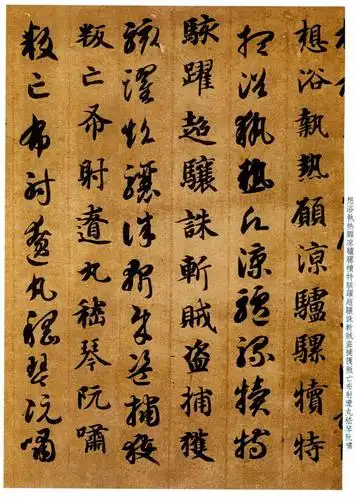 想浴執熱願涼驢騾犢特駭躍超驤誅斬賊盜捕獲叛亡布射遼丸嵇琴阮嘯
想浴執熱願涼驢騾犢特
想浴執熱願涼驢騾犢特
駭躍超驤誅斬賊盜捕獲
駭躍超驤誅斬賊盜捕獲
叛亡布射遼丸嵇琴阮嘯
叛亡布射遼丸嵇琴阮嘯